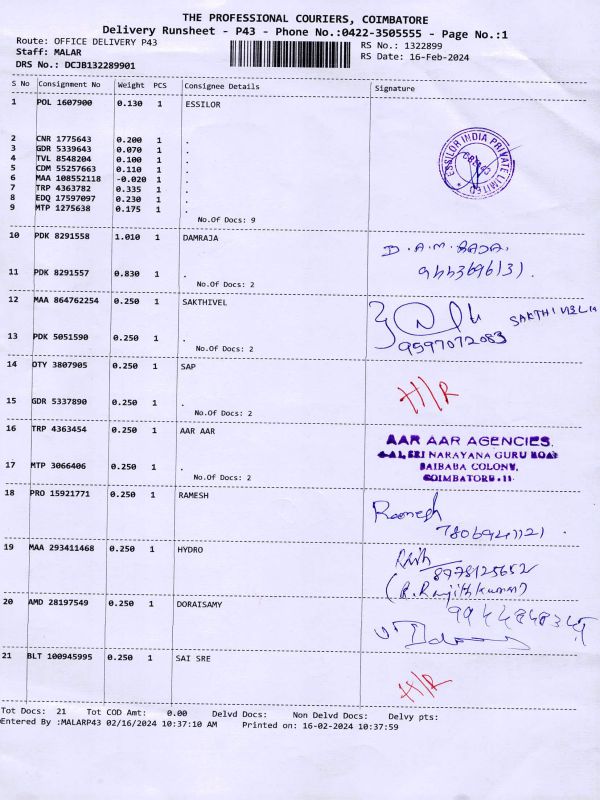 THE PROFESSIONAL COURIERS, COIMBATORE
Delivery Runsheet - P43 - Phone No.:0422-3505555 - Page No.:1
Route: OFFICE DELIVERY P43 RS No.: 1322899
Staff: MALAR RS Date: 16-Feb-2024
DRS No.: DCJB132289901
S No Consignment No Weight PCS Consignee Details Signature
1 POL 1607900 0.130 1 ESSILOR
ESSILOR INDIA PRIVATE LIMITED
2 CNR 1775643 0.200 1 .
3 GDR 5339643 0.070 1 .
4 TVL 8548204 0.100 1 .
5 CDM 55257663 0.110 1 .
6 MAA 108552118 -0.020 1 .
7 TRP 4363782 0.335 1 .
8 EDQ 17597097 0.230 1 .
9 MTP 1275638 0.175 1 .
No.Of Docs: 9
10 PDK 8291558 1.010 1 DAMRAJA
D.A.M. RAJA.
11 PDK 8291557 0.830 1 .
No.Of Docs: 2
12 MAA 864762254 0.250 1 SAKTHIVEL
SAKTHIVEL
13 PDK 5051590 0.250 1 .
9597072083
No.Of Docs: 2
14 OTY 3807905 0.250 1 SAP
H/R
15 GDR 5337890 0.250 1 .
No.Of Docs: 2
16 TRP 4363454 0.250 1 AAR AAR
AAR AAR AGENCIES.
SRI NARAYANA GURU ROAD
17 MTP 3066406 0.250 1 .
SAIBABA COLONY,
COIMBATORE-11.
No.Of Docs: 2
18 PRO 15921771 0.250 1 RAMESH
Ramesh
19 MAA 293411468 0.250 1 HYDRO
8978125652
(R. Ranjithkumar)
20 AMD 28197549 0.250 1 DORAISAMY
21 BLT 100945995 0.250 1 SAI SRE
H/R
Tot Docs: 21 Tot COD Amt: 0.00 Delvd Docs: Non Delvd Docs: Delvy pts:
Entered By :MALARP43 02/16/2024 10:37:10 AM Printed on: 16-02-2024 10:37:59